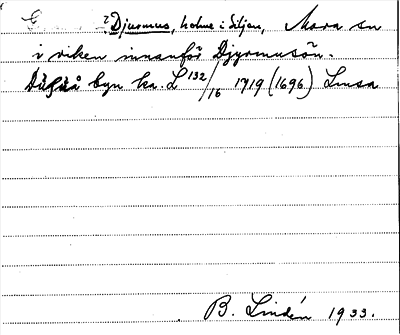 ? Djusmus, holme i Siljan, Mora sn
i viken innanför Djyrmusön.
byn ka. L 132/16 1719 (1696) Lmsa
B. Lindén 1933.